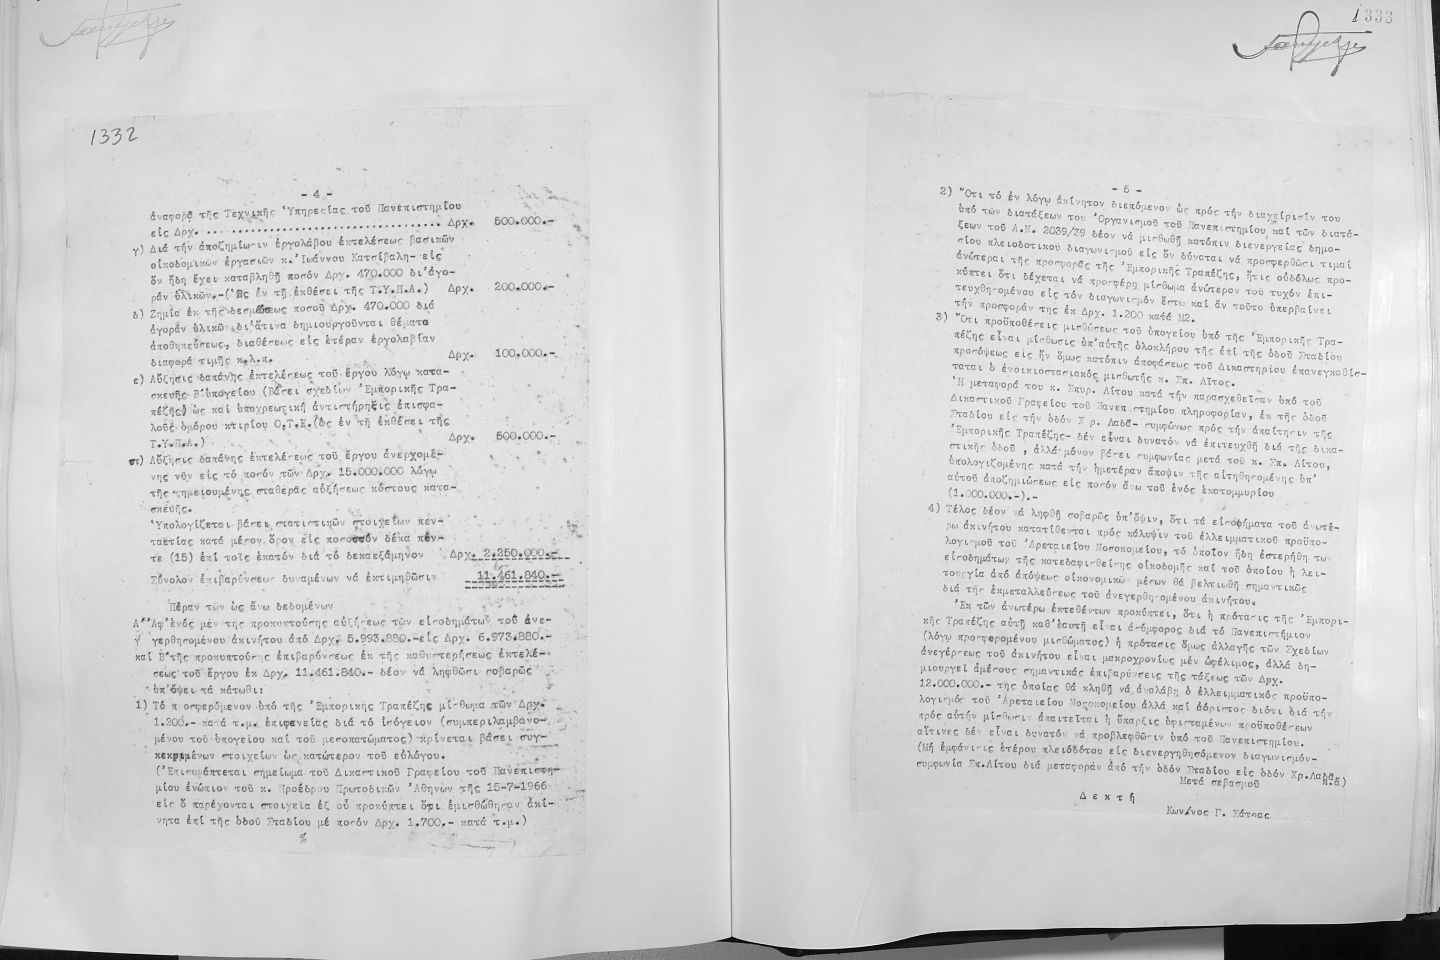 1332
- 4 -
ἀναφορᾷ τῆς Τεχνικῆς Ὑπηρεσίας τοῦ Πανεπιστημίου
εἰς Δρχ. .................................. Δρχ. 500.000.-
γ) Διά τήν ἀποζημίωσιν ἐργολάβου ἐκτελέσεως βασικῶν
οἰκοδομικῶν ἐργασιῶν κ. Ἰωάννου Κατσίβαλη- εἰς
ὅν ἤδη ἔχει καταβληθῆ ποσόν Δρχ. 470.000 δι'ἀγο-
ράν ὑλικῶν.-(Ὡς ἐν τῇ ἐκθέσει τῆς Τ.Υ.Π.Α.) Δρχ. 200.000.-
δ) Ζημία ἐκ τῆς δεσμεύσεως ποσοῦ Δρχ. 470.000 διά
ἀγοράν ὑλικῶν δι'ἅτινα δημιουργοῦνται θέματα
ἀποθηκεύσεως, διαθέσεως εἰς ἑτέραν ἐργολαβίαν
διαφορά τιμῆς κ.λ.π. Δρχ. 100.000.-
ε) Αὔξησις δαπάνης ἐκτελέσεως τοῦ ἔργου λόγῳ κατα-
σκευῆς Β'ὑπογείου (Βάσει σχεδίων Ἐμπορικῆς Τρα-
πέζης) ὡς καί ὑποχρεωτική ἀντιστήριξις ἐπισφα-
λοῦς ὁμόρου κτιρίου Ο.Τ.Ε.(ὡς ἐν τῇ ἐκθέσει τῆς
Τ.Υ.Π.Α.) Δρχ. 500.000.-
στ) Αὔξησις δαπάνης ἐκτελέσεως τοῦ ἔργου ἀνερχομέ-
νης νῦν εἰς τό ποσόν τῶν Δρχ. 15.000.000 λόγῳ
τῆς σημειουμένης σταθερᾶς αὐξήσεως κόστους κατα-
σκευῆς.
Ὑπολογίζεται βάσει στατιστικῶν στοιχείων πεν-
ταετίας κατά μέσον ὅρον εἰς ποσοστόν δέκα πέν-
τε (15) ἐπί τοῖς ἑκατόν διά τό δεκαεξάμηνον Δρχ. 2.250.000.-
Σύνολον ἐπιβαρύνσεως δυναμένων νά ἐκτιμηθῶσιν 11.461.840.-
Πέραν τῶν ὡς ἄνω δεδομένων
Α' Ἀφ'ἑνός μέν τῆς προκυπτούσης αὐξήσεως τῶν εἰσοδημάτων τοῦ ἀνε-
γερθησομένου ἀκινήτου ἀπό Δρχ. 5.993.880.-εἰς Δρχ. 6.973.880.-
καί Β'τῆς προκυπτούσης ἐπιβαρύνσεως ἐκ τῆς καθυστερήσεως ἐκτελέ-
σεως τοῦ ἔργου ἐκ Δρχ. 11.461.840.- δέον νά ληφθῶσι σοβαρῶς
ὑπ'ὄψει τά κάτωθι:
1) Τό προσφερόμενον ὑπό τῆς Ἐμπορικῆς Τραπέζης μίσθωμα τῶν Δρχ.
1.200.- κατά τ.μ. ἐπιφανείας διά τό ἰσόγειον (συμπεριλαμβανο-
μένου τοῦ ὑπογείου καί τοῦ μεσοπατώματος) κρίνεται βάσει συγ-
κεκριμένων στοιχείων ὡς κατώτερον τοῦ εὐλόγου.
(Ἐπισυνάπτεται σημείωμα τοῦ Δικαστικοῦ Γραφείου τοῦ Πανεπιστη-
μίου ἐνώπιον τοῦ κ. Προέδρου Πρωτοδικῶν Ἀθηνῶν τῆς 15-7-1966
εἰς ὅ παρέχονται στοιχεῖα ἐξ οὗ προκύπτει ὅτι ἐμισθώθησαν ἀκί-
νητα ἐπί τῆς ὁδοῦ Σταδίου μέ ποσόν Δρχ. 1.700.- κατά τ.μ.)
%
1333
- 5 -
2) Ὅτι τό ἐν λόγῳ ἀκίνητον διεπόμενον ὡς πρός τήν διαχείρισίν του
ὑπό τῶν διατάξεων τοῦ Ὀργανισμοῦ τοῦ Πανεπιστημίου καί τῶν διατά-
ξεων τοῦ Α.Ν. 2039/39 δέον νά μισθωθῇ κατόπιν διενεργείας δημο-
σίου πλειοδοτικοῦ διαγωνισμοῦ εἰς ὅν δύναται νά προσφερθῶσι τιμαί
ἀνώτεραι τῆς προσφορᾶς τῆς Ἐμπορικῆς Τραπέζης, ἥτις οὐδόλως προ-
κύπτει ὅτι δέχεται νά προσφέρῃ μίσθωμα ἀνώτερον τοῦ τυχόν ἐπι-
τευχθησομένου εἰς τόν διαγωνισμόν ἔστω καί ἄν τοῦτο ὑπερβαίνει
τήν προσφοράν της ἐκ Δρχ. 1.200 κατά Μ2.
3) Ὅτι προϋποθέσεις μισθώσεως τοῦ ὑπογείου ὑπό τῆς Ἐμπορικῆς Τρα-
πέζης εἶναι μίσθωσις ὑπ'αὐτῆς ὁλοκλήρου τῆς ἐπί τῆς ὁδοῦ Σταδίου
προσόψεως εἰς ἥν ὅμως κατόπιν ἀποφάσεως τοῦ Δικαστηρίου ἐπανεγκαθίσ-
ταται ὁ ἐνοικιοστασιακός μισθωτής κ. Σπ. Λίτος.
Ἡ μεταφορά τοῦ κ. Σπυρ. Λίτου κατά τήν παρασχεθεῖσαν ὑπό τοῦ
Δικαστικοῦ Γραφείου τοῦ Πανεπιστημίου πληροφορίαν, ἐκ τῆς ὁδοῦ
Σταδίου εἰς τήν ὁδόν Χρ. Λαδᾶ- συμφώνως πρός τήν ἀπαίτησιν τῆς
Ἐμπορικῆς Τραπέζης- δέν εἶναι δυνατόν νά ἐπιτευχθῇ διά τῆς δικα-
στικῆς ὁδοῦ , ἀλλά μόνον βάσει συμφωνίας μετά τοῦ κ. Σπ. Λίτου,
ὑπολογιζομένης κατά τήν ἡμετέραν ἄποψιν τῆς αἰτηθησομένης ὑπ'
αὐτοῦ ἀποζημιώσεως εἰς ποσόν ἄνω τοῦ ἑνός ἑκατομμυρίου
(1.000.000.-).-
4) Τέλος δέον νά ληφθῇ σοβαρῶς ὑπ'ὄψιν, ὅτι τά εἰσοδήματα τοῦ ἀνωτέ-
ρω ἀκινήτου κατατίθενται πρός κάλυψιν τοῦ ἐλλειμματικοῦ προϋπο-
λογισμοῦ τοῦ Ἀρεταιείου Νοσοκομείου, τό ὁποῖον ἤδη ἐστερήθη των
εἰσοδημάτων τῆς κατεδαφισθείσης οἰκοδομῆς καί τοῦ ὁποίου ἡ λει-
τουργία ἀπό ἀπόψεως οἰκονομικῶν μέσων θά βελτιωθῇ σημαντικῶς
διά τῆς ἐκμεταλλεύσεως τοῦ ἀνεγερθησομένου ἀκινήτου.
Ἐκ τῶν ἀνωτέρω ἐκτεθέντων προκύπτει, ὅτι ἡ πρότασις τῆς Ἐμπορι-
κῆς Τραπέζης αὐτή καθ'ἑαυτή εἶναι ἀσύμφορος διά τό Πανεπιστήμιον
(λόγῳ προσφερομένου μισθώματος) ἡ πρότασις ὅμως ἀλλαγῆς τῶν Σχεδίων
ἀνεγέρσεως τοῦ ἀκινήτου εἶναι μακροχρονίως μέν ὠφέλιμος, ἀλλά δη-
μιουργεῖ ἀμέσους σημαντικάς ἐπιβαρύνσεις τῆς τάξεως τῶν Δρχ.
12.000.000.- τῆς ὁποίας θά κληθῇ νά ἀναλάβῃ ὁ ἐλλειμματικός προϋπο-
λογισμός τοῦ Ἀρεταιείου Νοσοκομείου ἀλλά καί ἀόριστος διότι διά τήν
πρός αὐτήν μίσθωσιν ἀπαιτεῖται ἡ ὕπαρξις ὑφισταμένων προϋποθέσεων
αἵτινες δέν εἶναι δυνατόν νά προβλεφθῶσιν ὑπό τοῦ Πανεπιστημίου.
(Μή ἐμφάνισις ἑτέρου πλειοδότου εἰς διενεργηθησόμενον διαγωνισμόν-
συμφωνία Σπ.Λίτου διά μεταφοράν ἀπό τήν ὁδόν Σταδίου εἰς ὁδόν Χρ.Λαδᾶ κ.ἄ)
Μετά σεβασμοῦ
Δ ε κ τ ή
Κων/νος Γ. Σάτρας